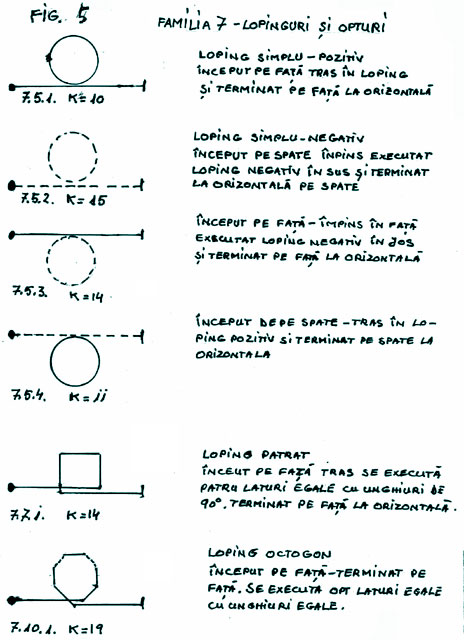 FIG. 5
FAMILIA 7 - LOPINGURI ȘI OPTURI
LOPING SIMPLU - POZITIV
ÎNCEPUT PE FAȚĂ TRAS ÎN LOPING
ȘI TERMINAT PE FAȚĂ LA ORIZONTALĂ
7.5.1. K=10
LOPING SIMPLU-NEGATIV
ÎNCEPUT PE SPATE ÎNPINS EXECUTAT
LOPING NEGATIV ÎN SUS ȘI TERMINAT
LA ORIZONTALĂ PE SPATE
7.5.2. K=15
ÎNCEPUT PE FAȚĂ-ÎMPINS ÎN FAȚĂ
EXECUTAT LOPING NEGATIV ÎN JOS
ȘI TERMINAT PE FAȚĂ LA ORIZONTALĂ
7.5.3. K=14
ÎNCEPUT DE PE SPATE - TRAS ÎN LO-
PING POZITIV SI TERMINAT PE SPATE LA
ORIZONTALA
7.5.4. K=11
LOPING PATRAT
ÎNCEUT PE FAȚĂ TRAS SE EXECUTĂ
PATRU LATURI EGALE CU UNGHIURI DE
90°. TERMINAT PE FAȚĂ LA ORIZONTALĂ.
7.7.1. K=14
LOPING OCTOGON
ÎNCEPUT PE FAȚĂ-TERMINAT PE
FAȚĂ. SE EXECUTĂ OPT LATURI EGALE
CU UNGHIURI EGALE.
7.10.1. K=19